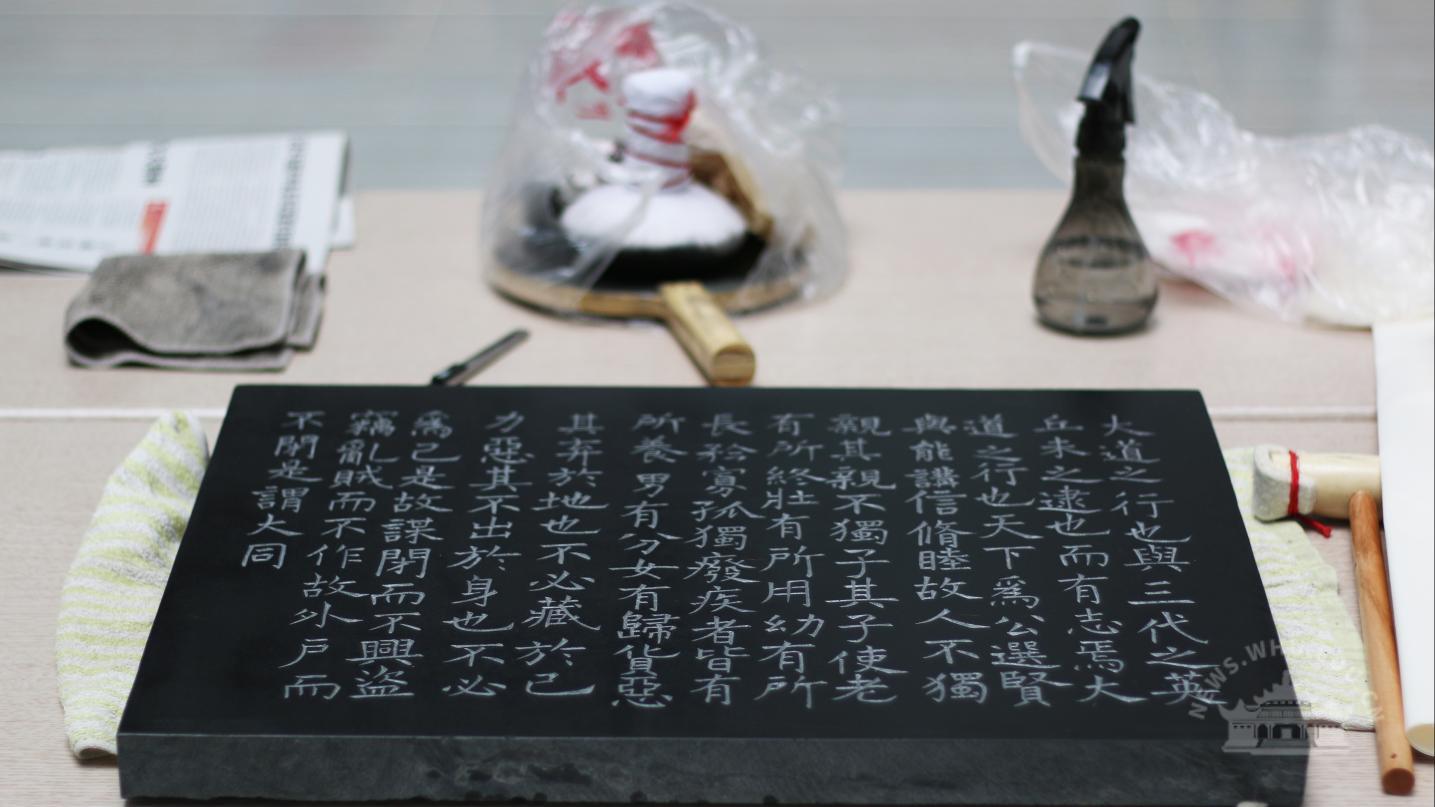 大道之行也與三代之英
丘未之逮也而有志焉大
道之行也天下爲公選賢
與能講信脩睦故人不獨
親其親不獨子其子使老
有所終壯有所用幼有所
長矜寡孤獨廢疾者皆有
所養男有分女有歸貨惡
其弃於地也不必藏於己
力惡其不出於身也不必
爲己是故謀閉而不興盜
竊亂賊而不作故外戶而
不閉是謂大同
NEWS.WHU.EDU.CN